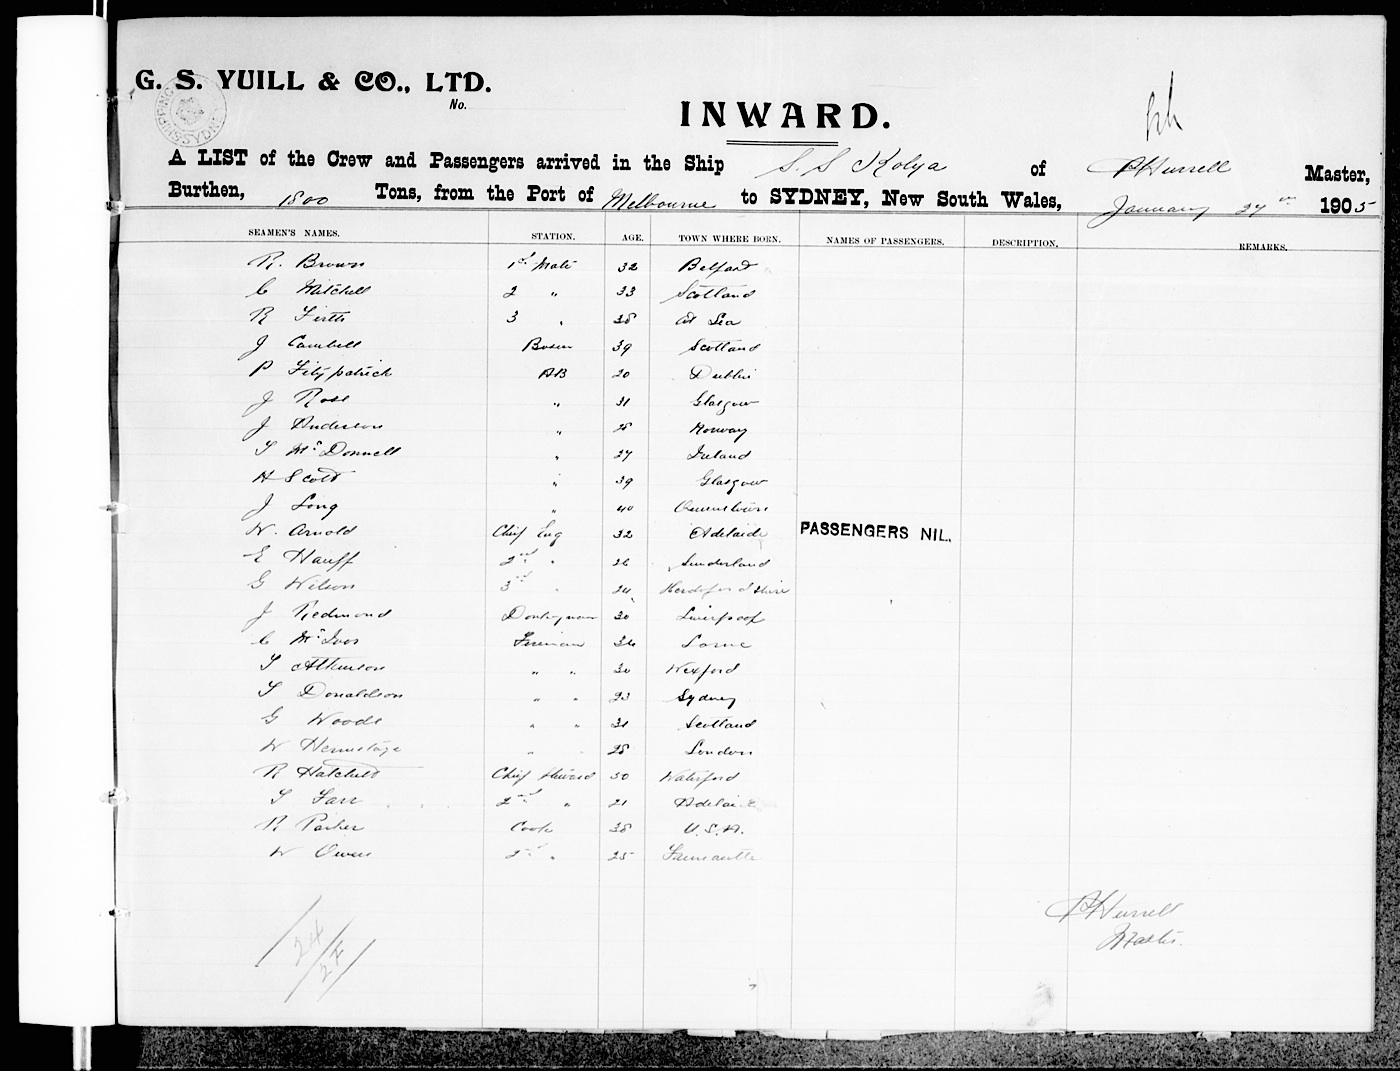 G. S. YUILL & CO., LTD.
No.
SHIPPING SYDNEY
INWARD.
A LIST of the Crew and Passengers arrived in the Ship S. S Kolya of Hurrell Master,
Burthen, 1800 Tons, from the Port of Melbourne to SYDNEY, New South Wales, January 27th 1905
SEAMEN'S NAMES. STATION. AGE. TOWN WHERE BORN. NAMES OF PASSENGERS. DESCRIPTION. REMARKS.
R. Brown 1st Mate 32 Belfast
C Mitchell 2 " 33 Scotland
R Firth 3 " 38 At Sea
J Cambell Bosun 39 Scotland
P Fitzpatrick AB 20 Dublin
J Rose " 31 Glasgow
J Anderson " Norway
T McDonnell " 27 Ireland
H Scott " 39 Glasgow
J Long " 40 Queenstown
W. Arnold Chief Eng 32 Adelaide PASSENGERS NIL.
E Hauff 2nd " 26 Sunderland
G Wilson 3rd " 24
J Redmond Donkeyman 30 Liverpool
C McIvor Fireman 36
T Atkinson " " 30 Wexford
T Donaldson " " 23 Sydney
G Woods " " 31 Scotland
W Hermitage " " 28 London
R Hatchett Chief Steward 30 Waterford
T Farr 2nd " 21 Adelaide
R Parker Cook 38 U.S.A.
W Owen 2nd " 25
Hurrell
Master.
24